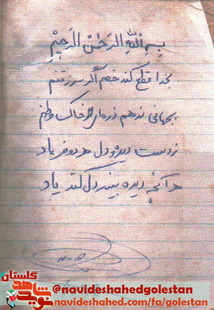 بسم الله الرحمن الرحیم
بخدا قطع کند خصم اگر سر ز تنم
بجهانی ندهم ذره‌ای از خاک وطنم
ز دست دیده و دل هر دو فریاد
هر آنچه دیده بیند دل کند یاد
گلستان
نوید شاهد
@navideshahedgolestan
navideshahed.com/fa/golestan